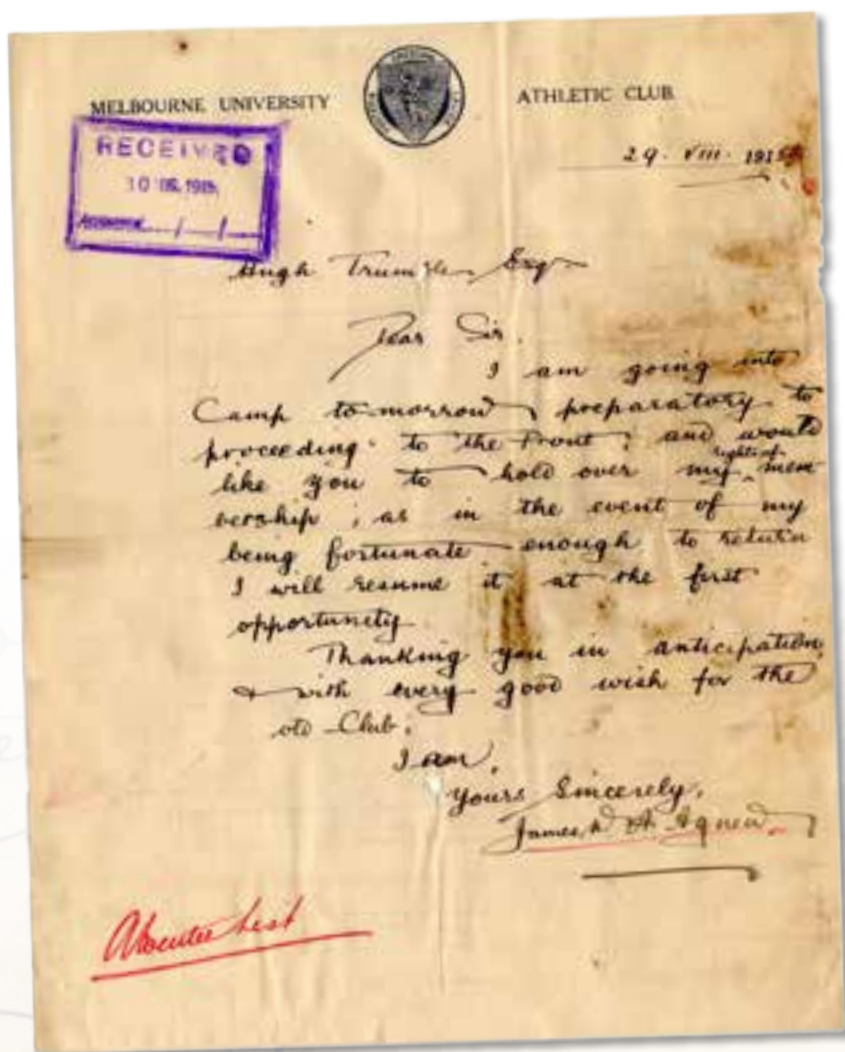 MELBOURNE UNIVERSITY ATHLETIC CLUB
RECEIVED
29. VIII. 1915
Hugh Trumble Esq.
Dear Sir.
I am going into
Camp to-morrow, preparatory to
proceeding to the Front; and would
like you to hold over my rights of mem
bership; as in the event of my
being fortunate enough to return
I will resume it at the first
opportunity
Thanking you in anticipation,
& with every good wish for the
old Club,
I am,
Yours Sincerely,
James A. Agnew.
Absentee List